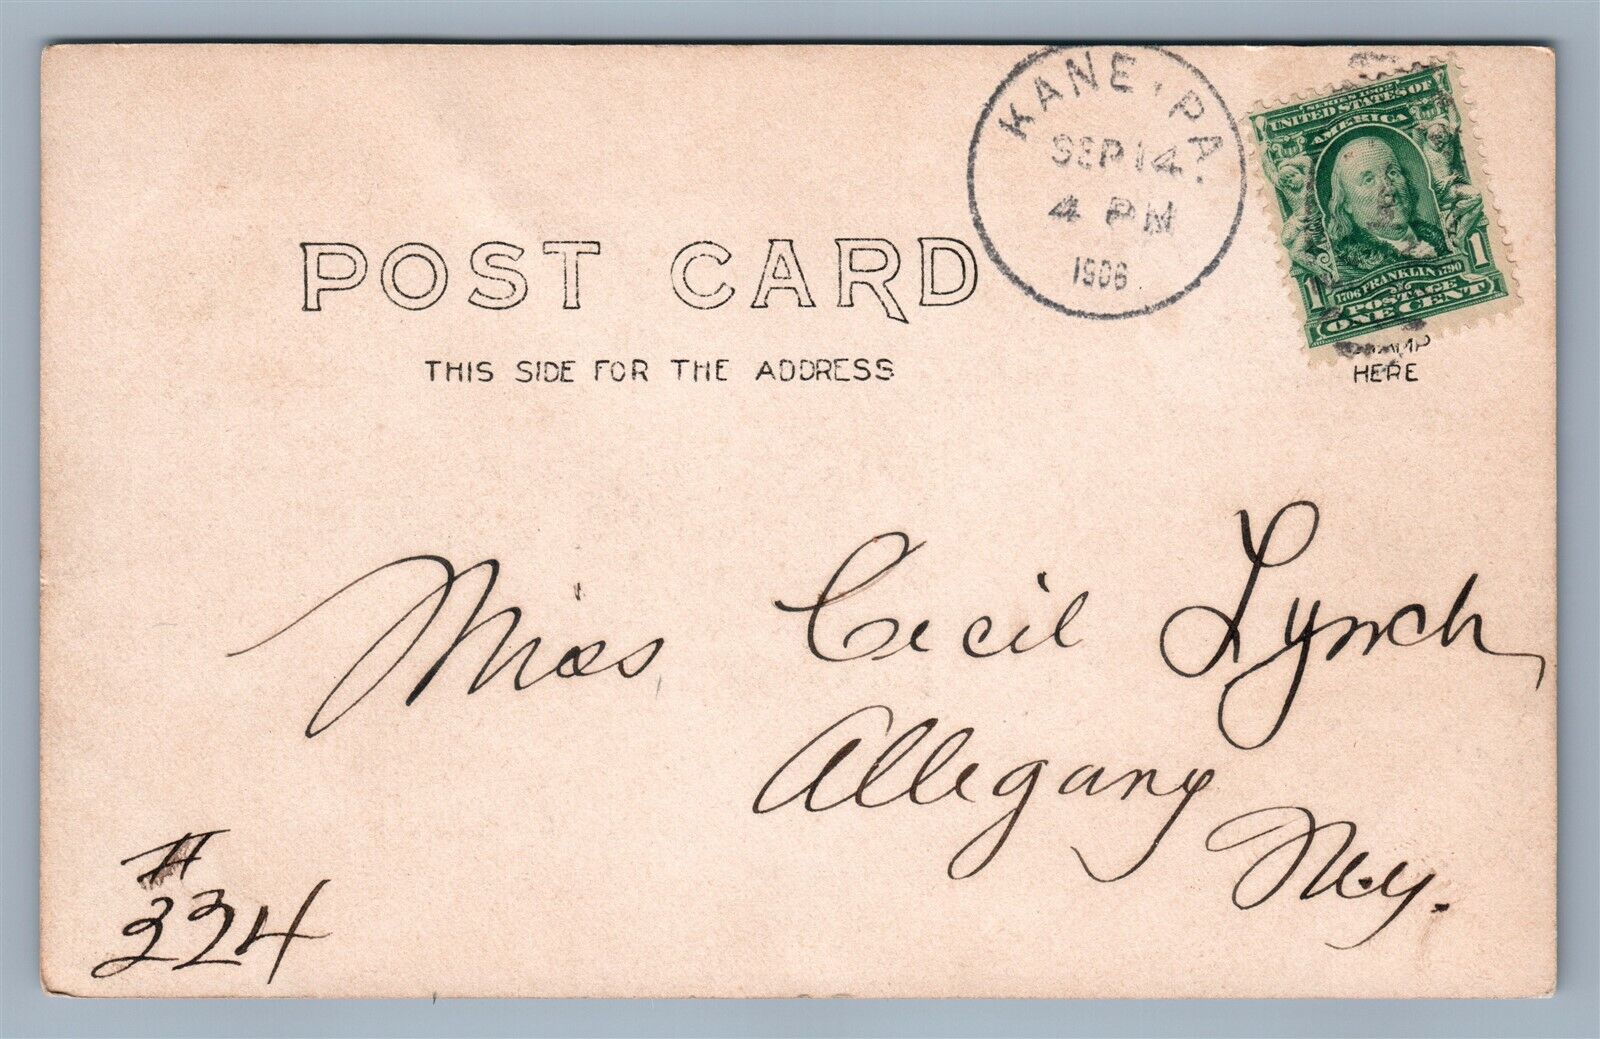 KANE, PA.
SEP 14
4 PM
1906
SERIES 1902
UNITED STATES OF
AMERICA
1706 FRANKLIN 1790
1 1
POSTAGE
ONE CENT
POST CARD
THIS SIDE FOR THE ADDRESS
HERE
Miss Cecil Lynch,
Allegany
N.y.
#
324